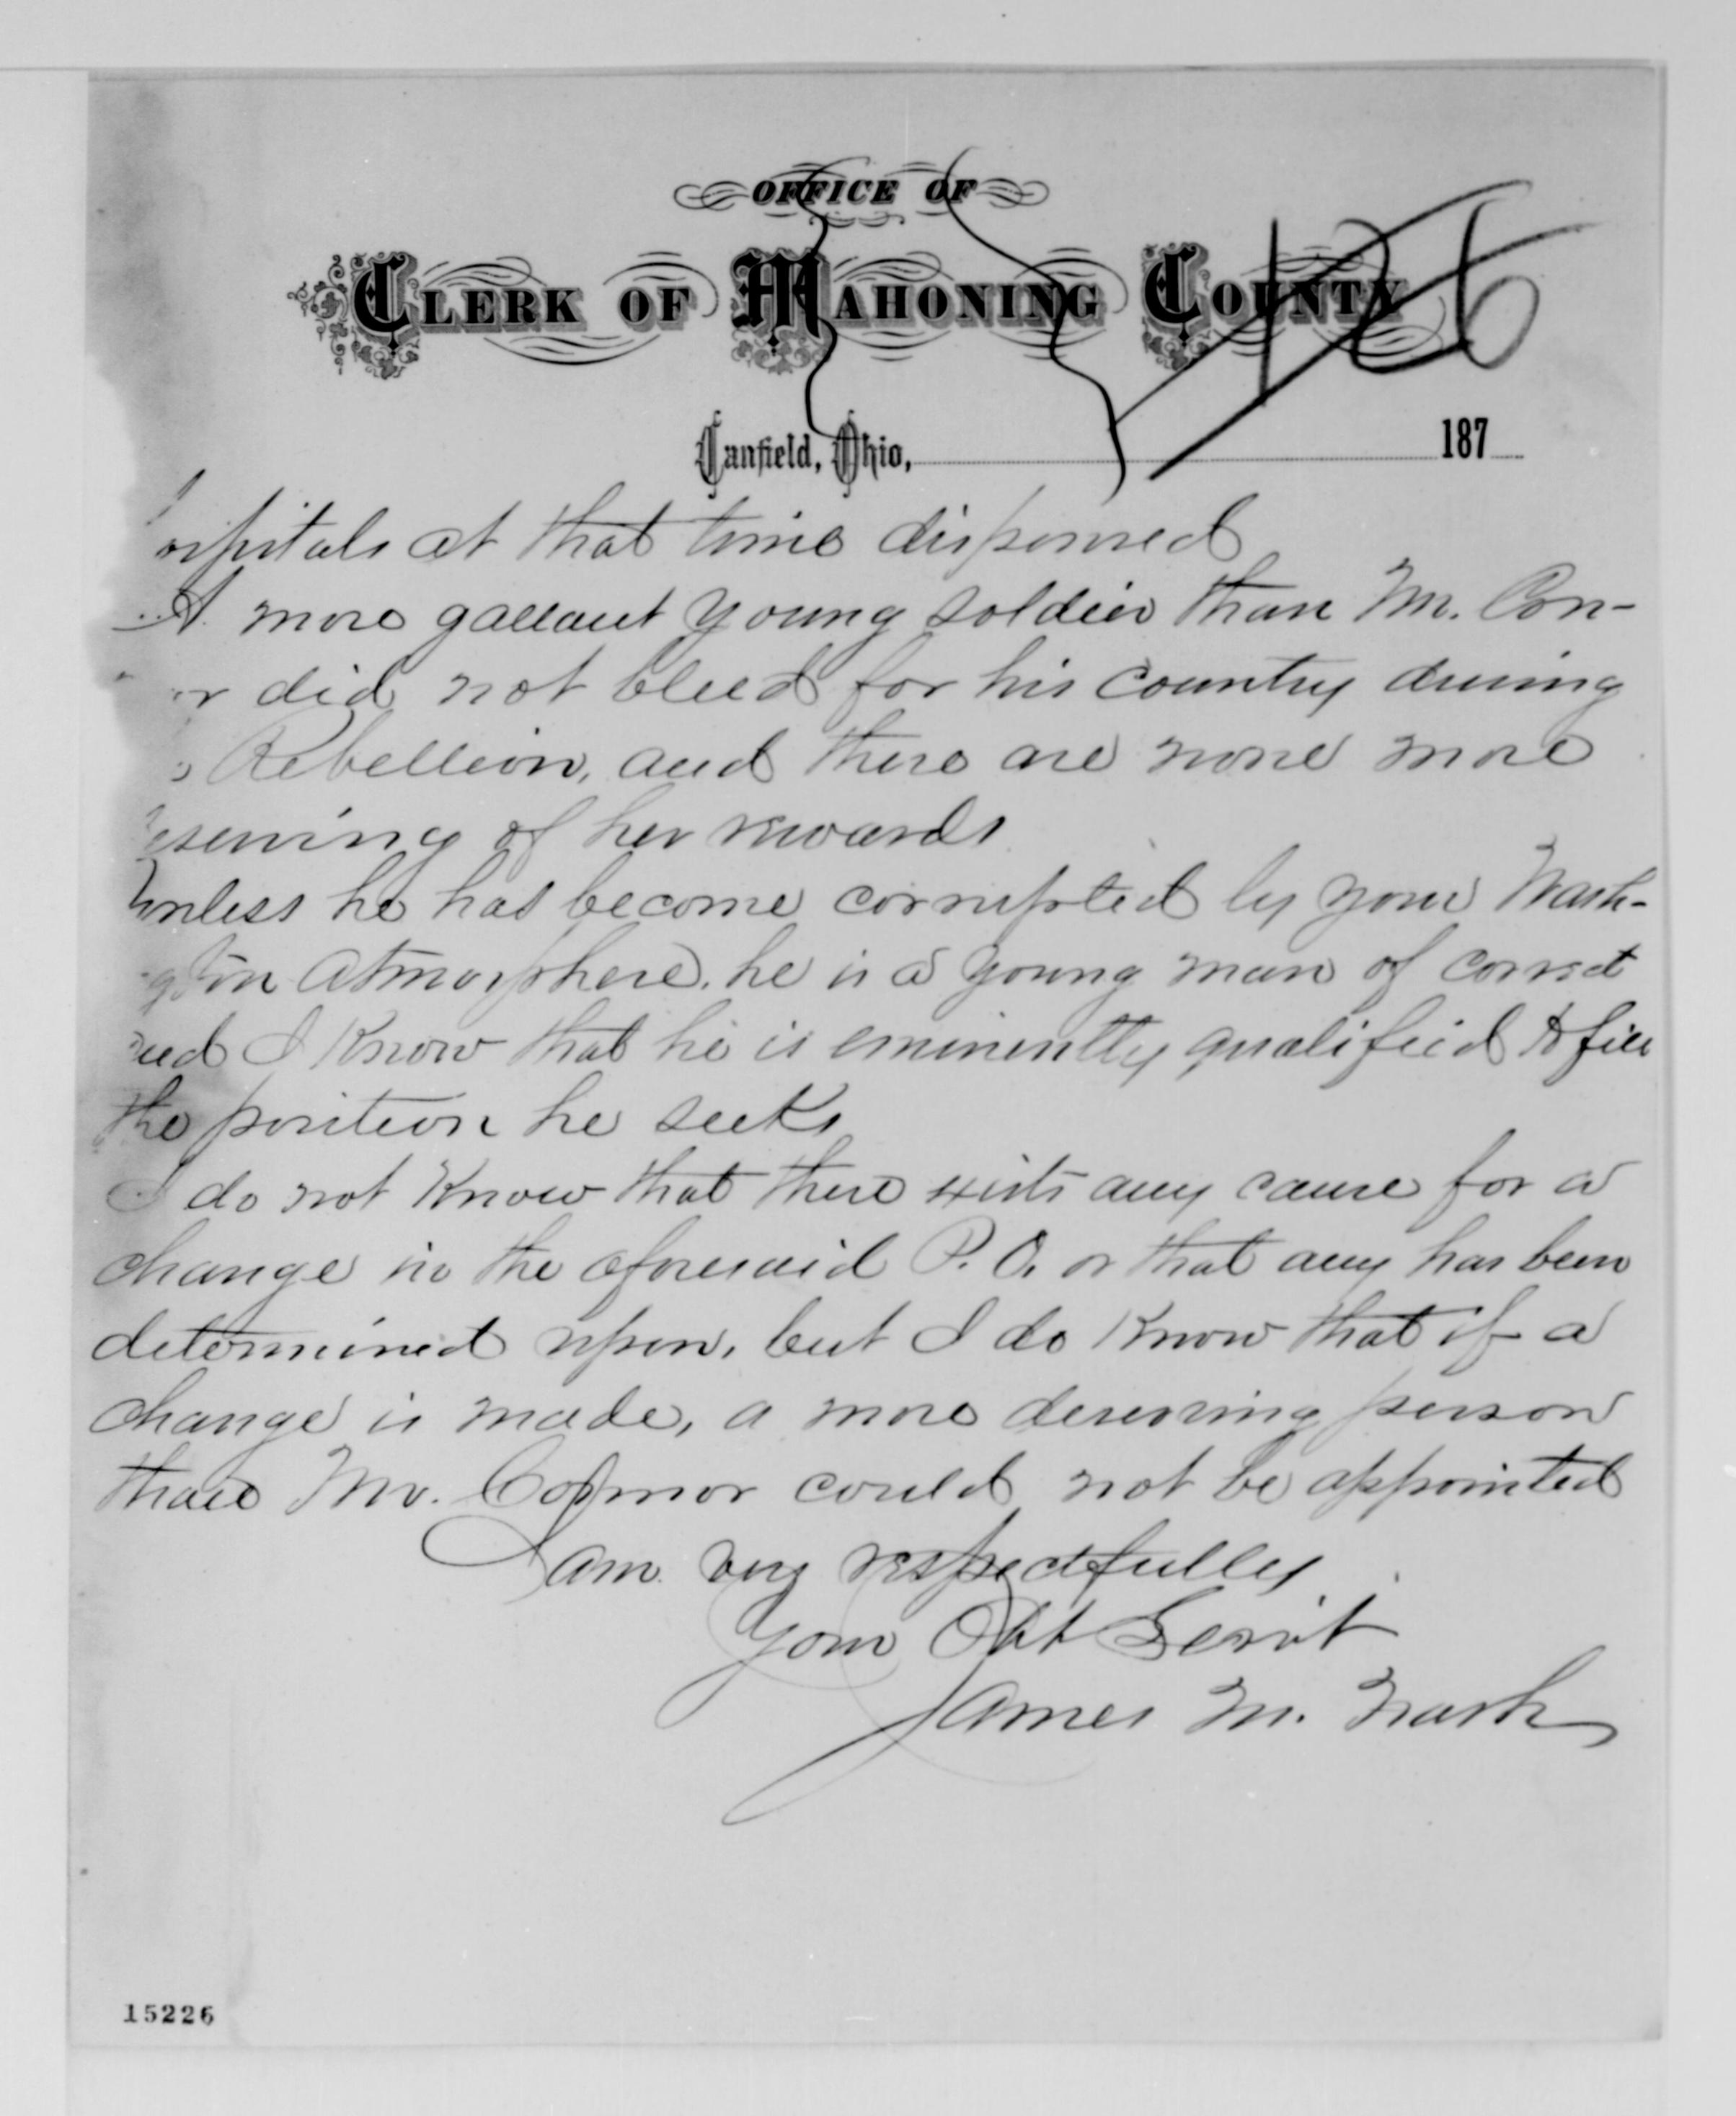 OFFICE OF
CLERK OF MAHONING COUNTY
126
Canfield, Ohio, 187
ospitals at that time dispensed
A more gallant young soldier than Mr. Con-
or did not bleed for his country during
Rebellion, and there are none more
eserving of her rewards
Unless he has become corrupted by your Wash-
gton atmosphere, he is a young man of correct
and I know that he is eminently qualified to fill
the position he seeks
I do not know that there exists any cause for a
change in the aforesaid P.O. or that any has been
determined upon, but I do know that if a
change is made, a more deserving person
than Mr. Connor could not be appointed
I am very respectfully
Your Obt Servt
James M. Nash
15226